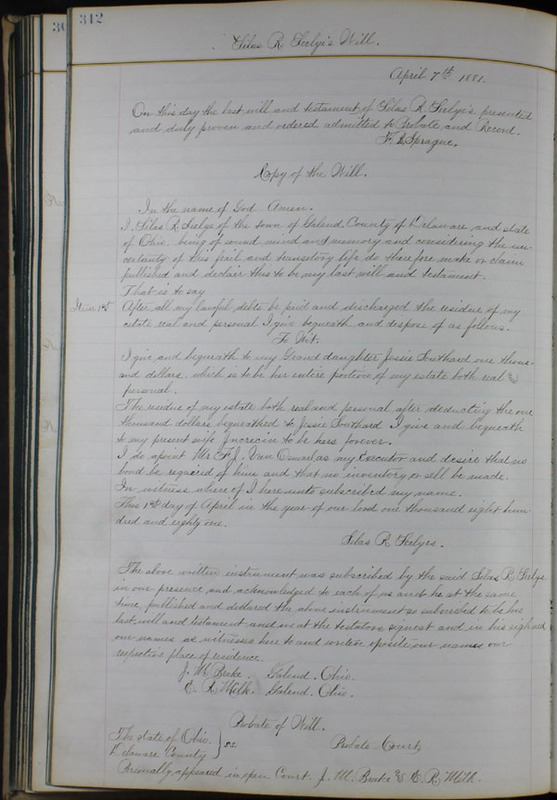 342
Silas R Seelye's Will.
April 7th 1881.
On this day the last will and testament of Silas R. Seelye's presented
and duly proven and ordered admitted to Probate and Record.
F. B. Sprague.
Copy of the Will.
In the name of God Amen.
I, Silas R. Seelye of the town of Galend, County of Delaware, and state
of Ohio. being of sound mind and memory and considering the un-
certainty of this frail and transitory life do therefore make or claim
published and declair this to be my last will and testament.
That is to say
Item 1st After all my lawful debts be paid and discharged the residue of my
estate real and personal I give bequeath and dispose of as follows.
To Wit.
I give and bequeath to my Grand daughter Jessie Southard one thous-
and dollars. which is to be her entire portion of my estate both real &
personal.
The residue of my estate both real and personal after deducting the one
thousand dollars bequeathed to Jessie Southard I give and bequeath
to my present wife to be hers forever.
I do apoint Mr. Van as my Executor and desire that no
bond be required of him and that no inventory or sell be made.
In witness where of I here unto subscribed my name.
This 1st day of April in the year of our lord one thousand eight hun-
dred and eighty one.
Silas R. Seelyes.
The above written instrument was subscribed by the said Silas R. Seelye
in our presence and acknowledged to each of us and he at the same
time, published and declared the above instriument so subscribed to be his
last will and testament and us at the testators siquest and in his sigh and
our names as witnesses here to and written oposite our names our
respective place of residence.
J. M. Galend. Ohio.
E. R. Melk. Galend. Ohio.
Probate of Will.
The State of Ohio. } ss.
Delaware County Probate Court
Personally appeared in open Court J. M. & E. R. Melk.